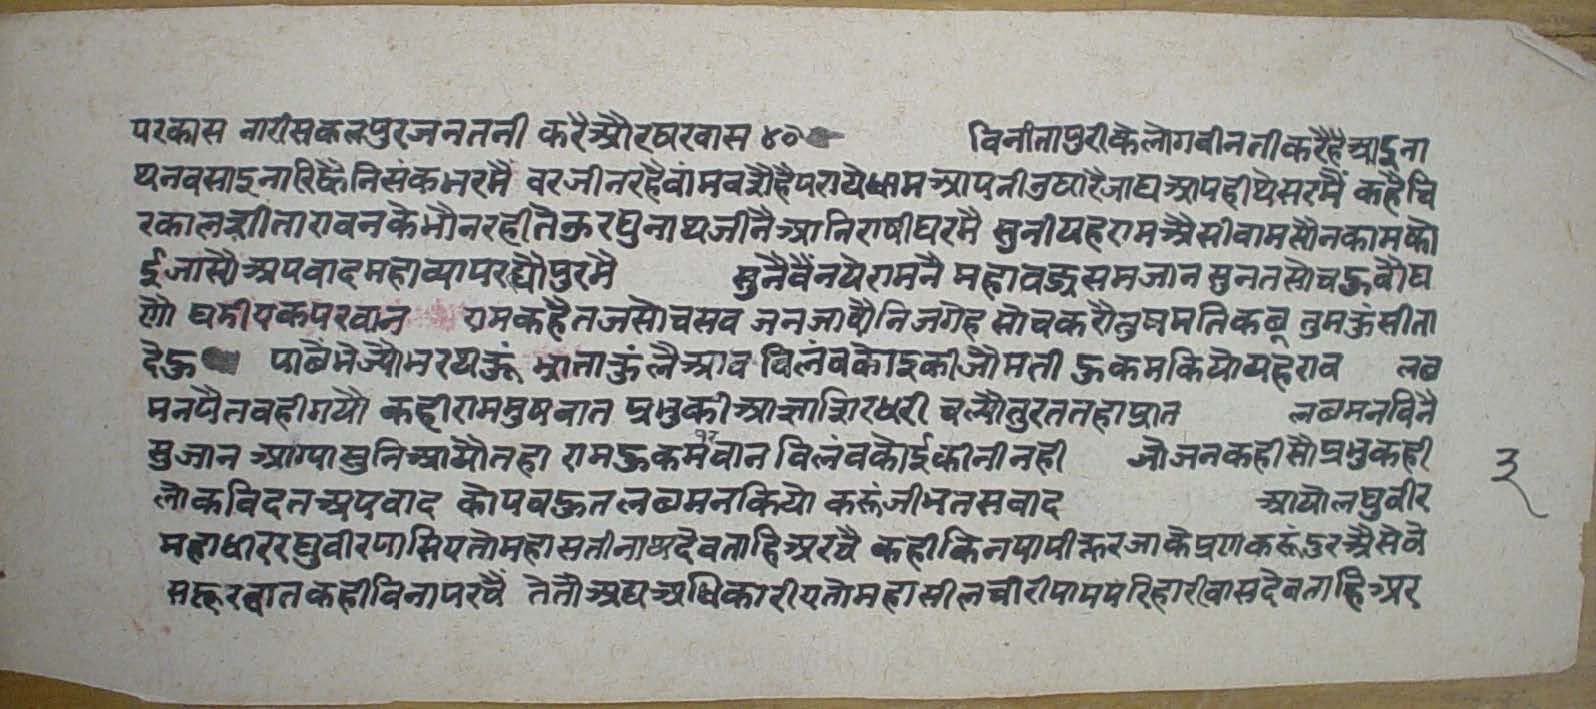 परकास नारीसकलपुरजनतनी करैऔरघरवास ४० विनीतापुरीकेलोगवीनतीकरैहैआइना
थनवसाइनारिफैनिसंकभरमैं वरजीनरहैवांमवसैहैपरायेधामआपनीउघारैजाघआपहीयेसरमैं कहैचि
रकालशीतारावनकेभौनरहीतेऊरघुनाथजीनैआनिराषीघरमै सुनीयहरामअैसीवामसौनकामको
ईजासौअपवादमहाव्यापरह्यौपुरमै सुनैवैंनयेरामनै महावज्रसमजान सुनतसोचऊवौघ
णो घर्मीपकपरवान रामकहैतजसोचसव जनजावौनिजगेह सोचकरौतुममतिकबू तुमऊंसीता
देऊ पाबैभेज्यौभरथऊं भ्राताऊंलैआव विलंवकोइकीजौमती ऊकमकियोयहराव लब
मनपैतवहीगयौ कहीराममुषवात प्रभुकीआज्ञाशिरधरी चल्यौतुरततहाभ्रात लब्यमनविनै
सुजान आग्यासुनिआयौतहा रामऊकमवान विलंवकोईकीनीनही जोजनकहीसौप्रभुकही
लोकविदतअपवाद कोपवऊतलब्यमनकियो करूंजीभतसवाद आयोलघुवीर
महाधीररघुवीरपासियतोमहासतीनाथदेवताहिअरचै कहीकिनपापीकरजाकेप्राणकरूंदुरअैसेवे
सहूरवातकहीविनापरचै तेतौअघअधिकारीयतोमहासीलचीरीपापपरिहारीवासदेवताहिअर
३